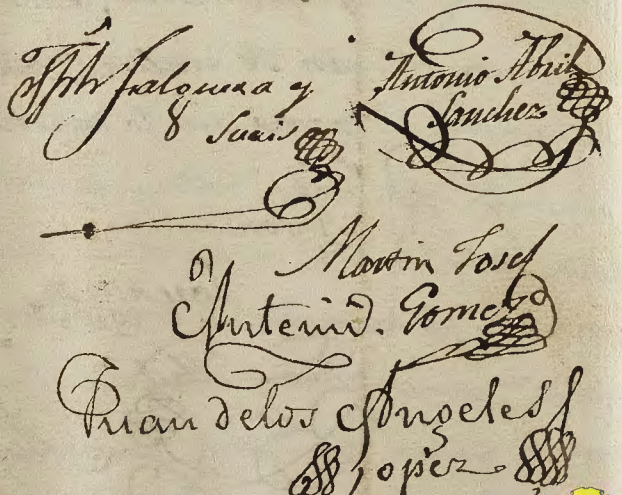 Falguera y
Suris
Antonio Abril
Sanchez
Martin Josef
Antonio. Gomez
Juan delos Angeles
Lopez